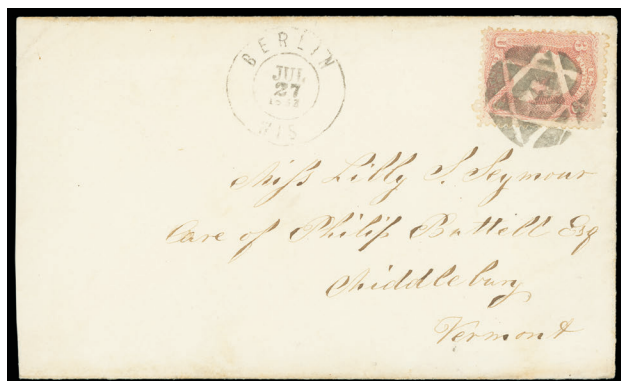 BERLIN
JUL
27
WIS
3
Miss Lilly S. Seymour
Care of Philip Battell Esq
Middlebury
Vermont